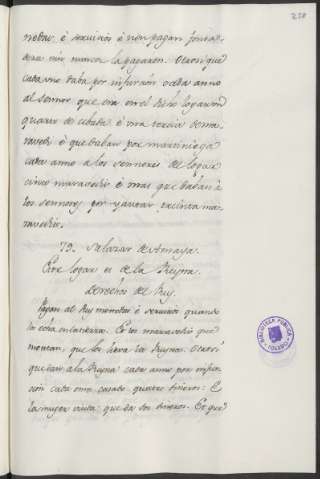 220
nedas é servicios é non pagan fonsa-
dera nin nunca la pagaron. Otrosi que
cada uno daba por infurcion cada anno
al sennor que era en el dicho logar un
quarzo de cebada é una tercia de ma-
ravedi é que daban por martiniega
cada anno a los sennores del logar
cinco maravedis é mas que daban á
los sennores por yantar treinta ma-
ravedis.
79. Salazar de Amaya.
Este logar es de la Reyna.
Derechos del Rey.
Pagan al Rey monedas é servicios quando
la echa en la tierra. Et los maravedis que
montan, que los lieva la Reyna. Otrosi
que dan a la Reyna cada anno por infur-
cion cada omo casado quatro dineros: E
la muger viuda que da dos dineros. Et que
BIBLIOTECA PUBLICA
TOLEDO